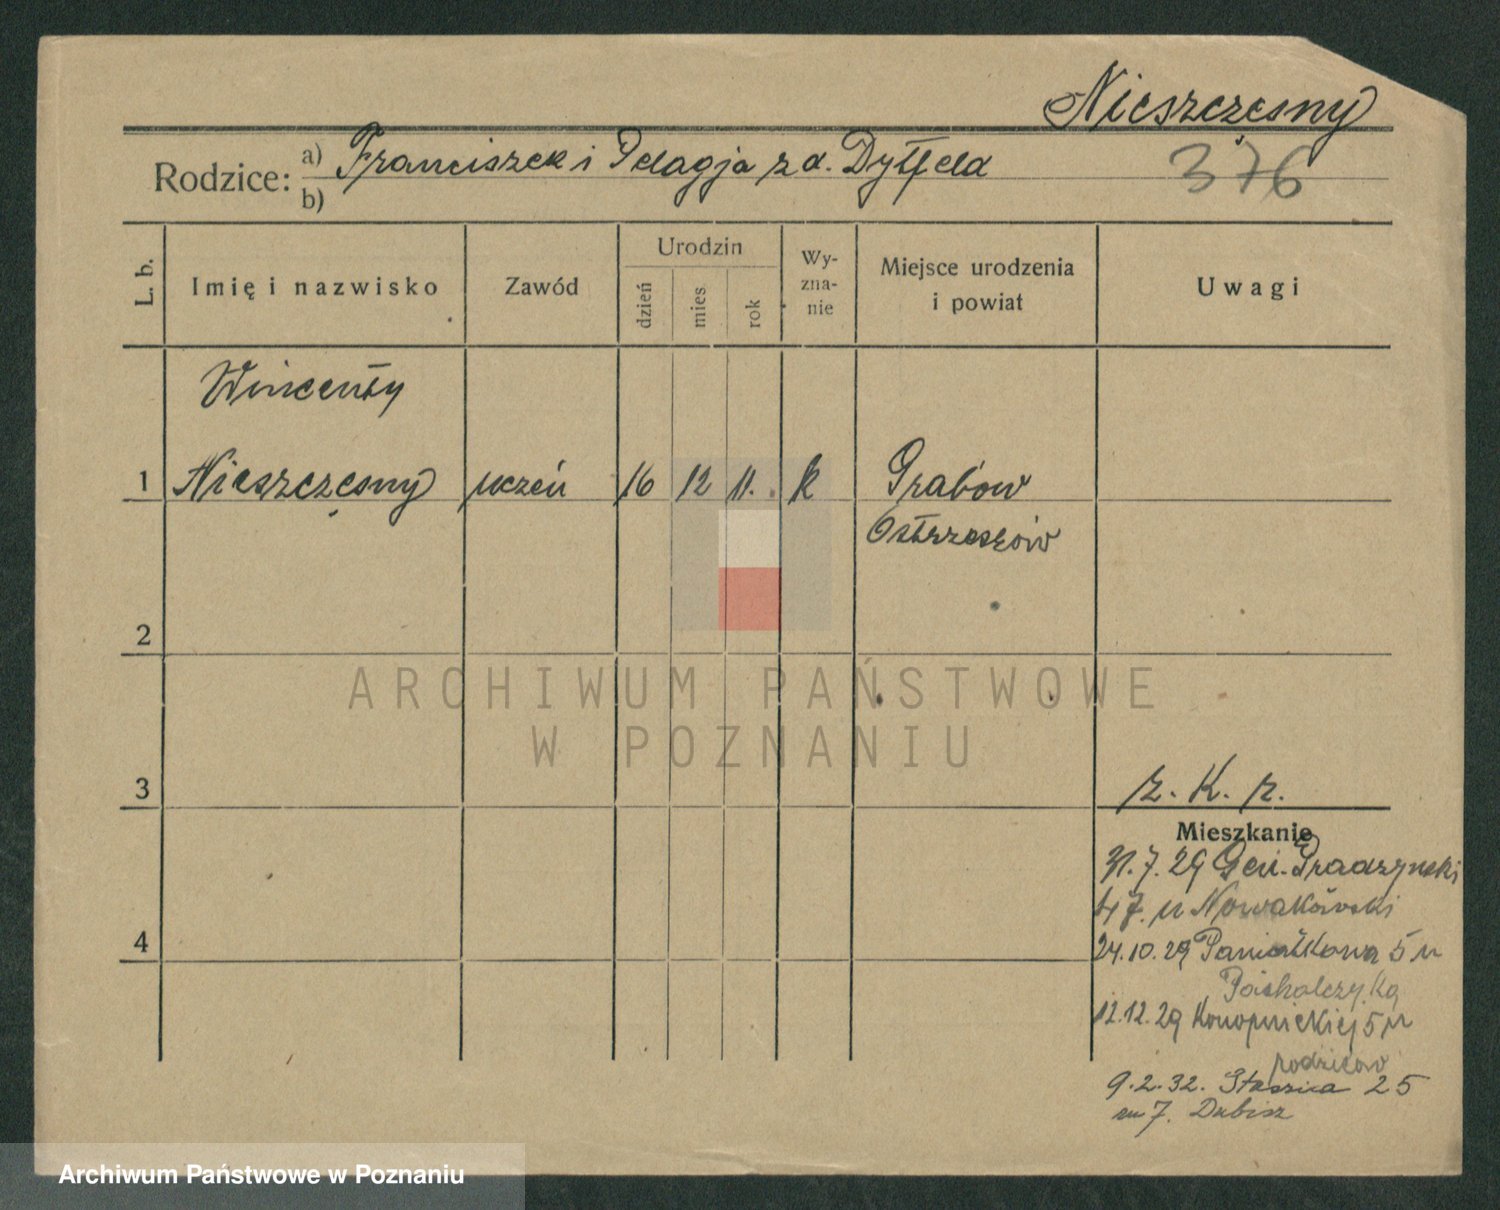 Nieszczęsny
376
Rodzice: a) Franciszek i Pelagja z d. Dytfeld
b)
L. b. Imię i nazwisko Zawód Urodzin dzień mies rok Wyznanie Miejsce urodzenia i powiat Uwagi
Wincenty
1 Nieszczęsny uczeń 16 12 11. k Grabów
Ostrzeszów
2
ARCHIWUM PAŃSTWOWE
W POZNANIU
3
r. K. r.
Mieszkanie
31.7.29 Gen. Prądzyński
47 u Nowakowski
4
24.10.29 Poniatkowa 5 u
Pashalczyka
12.12.29 Konopnickiej 5 u
rodziców
9.2.32. Staszica 25
m 7. Dubisz
Archiwum Państwowe w Poznaniu